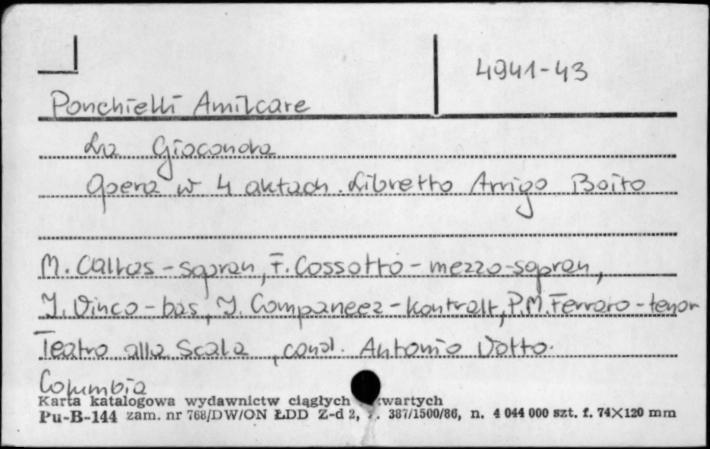 4941-43
Ponchielli Amilcare
La Gioconda
Opera w 4 aktach. Libretto Arrigo Boito
M. Callas - sopran, F. Cossotto - mezzo-sopran,
I. Vinco - bas, I. Companeez - kontralt, P.M. Ferraro - tenor
Teatro alla Scala, cond. Antonio Votto.
Columbia
Karta katalogowa wydawnictw ciągłych wartych
Pu-B-144 zam. nr 768/DW/ON ŁDD Z-d 2, 387/1500/86, n. 4 044 000 szt. f. 74×120 mm